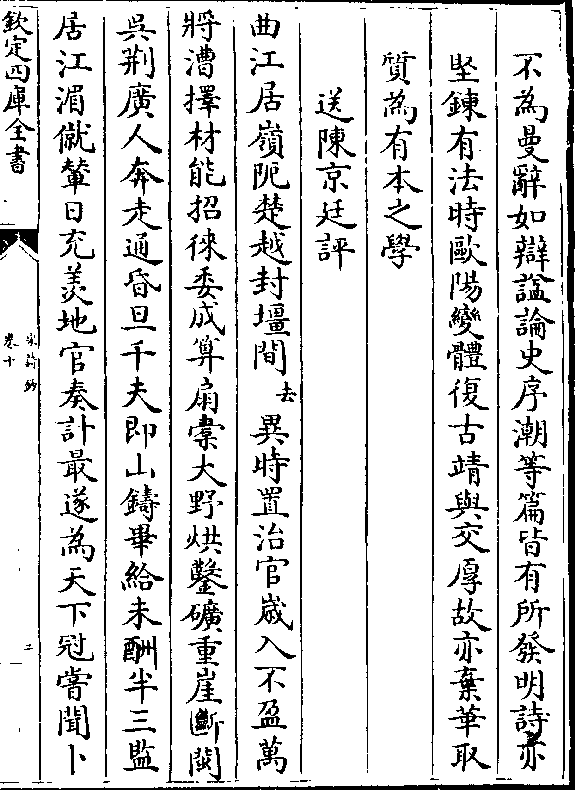 不為曼辭如辯諡論史序潮等篇皆有所發明詩亦
堅鍊有法時歐陽變體復古靖與交厚故亦棄華取
質為有本之學
送陳京廷評
曲江居嶺阨楚越封壃間去異時置治官嵗入不盈萬
將漕擇材能招徠委成算扇橐大野烘鑿礦重崖斷閩
吳荆廣人奔走通昏旦千夫即山鑄畢給未酬半三監
居江湄僦輦日充羨地官奏計最遂為天下冠嘗聞卜
欽定四庫全書
宋詩鈔
卷十
二